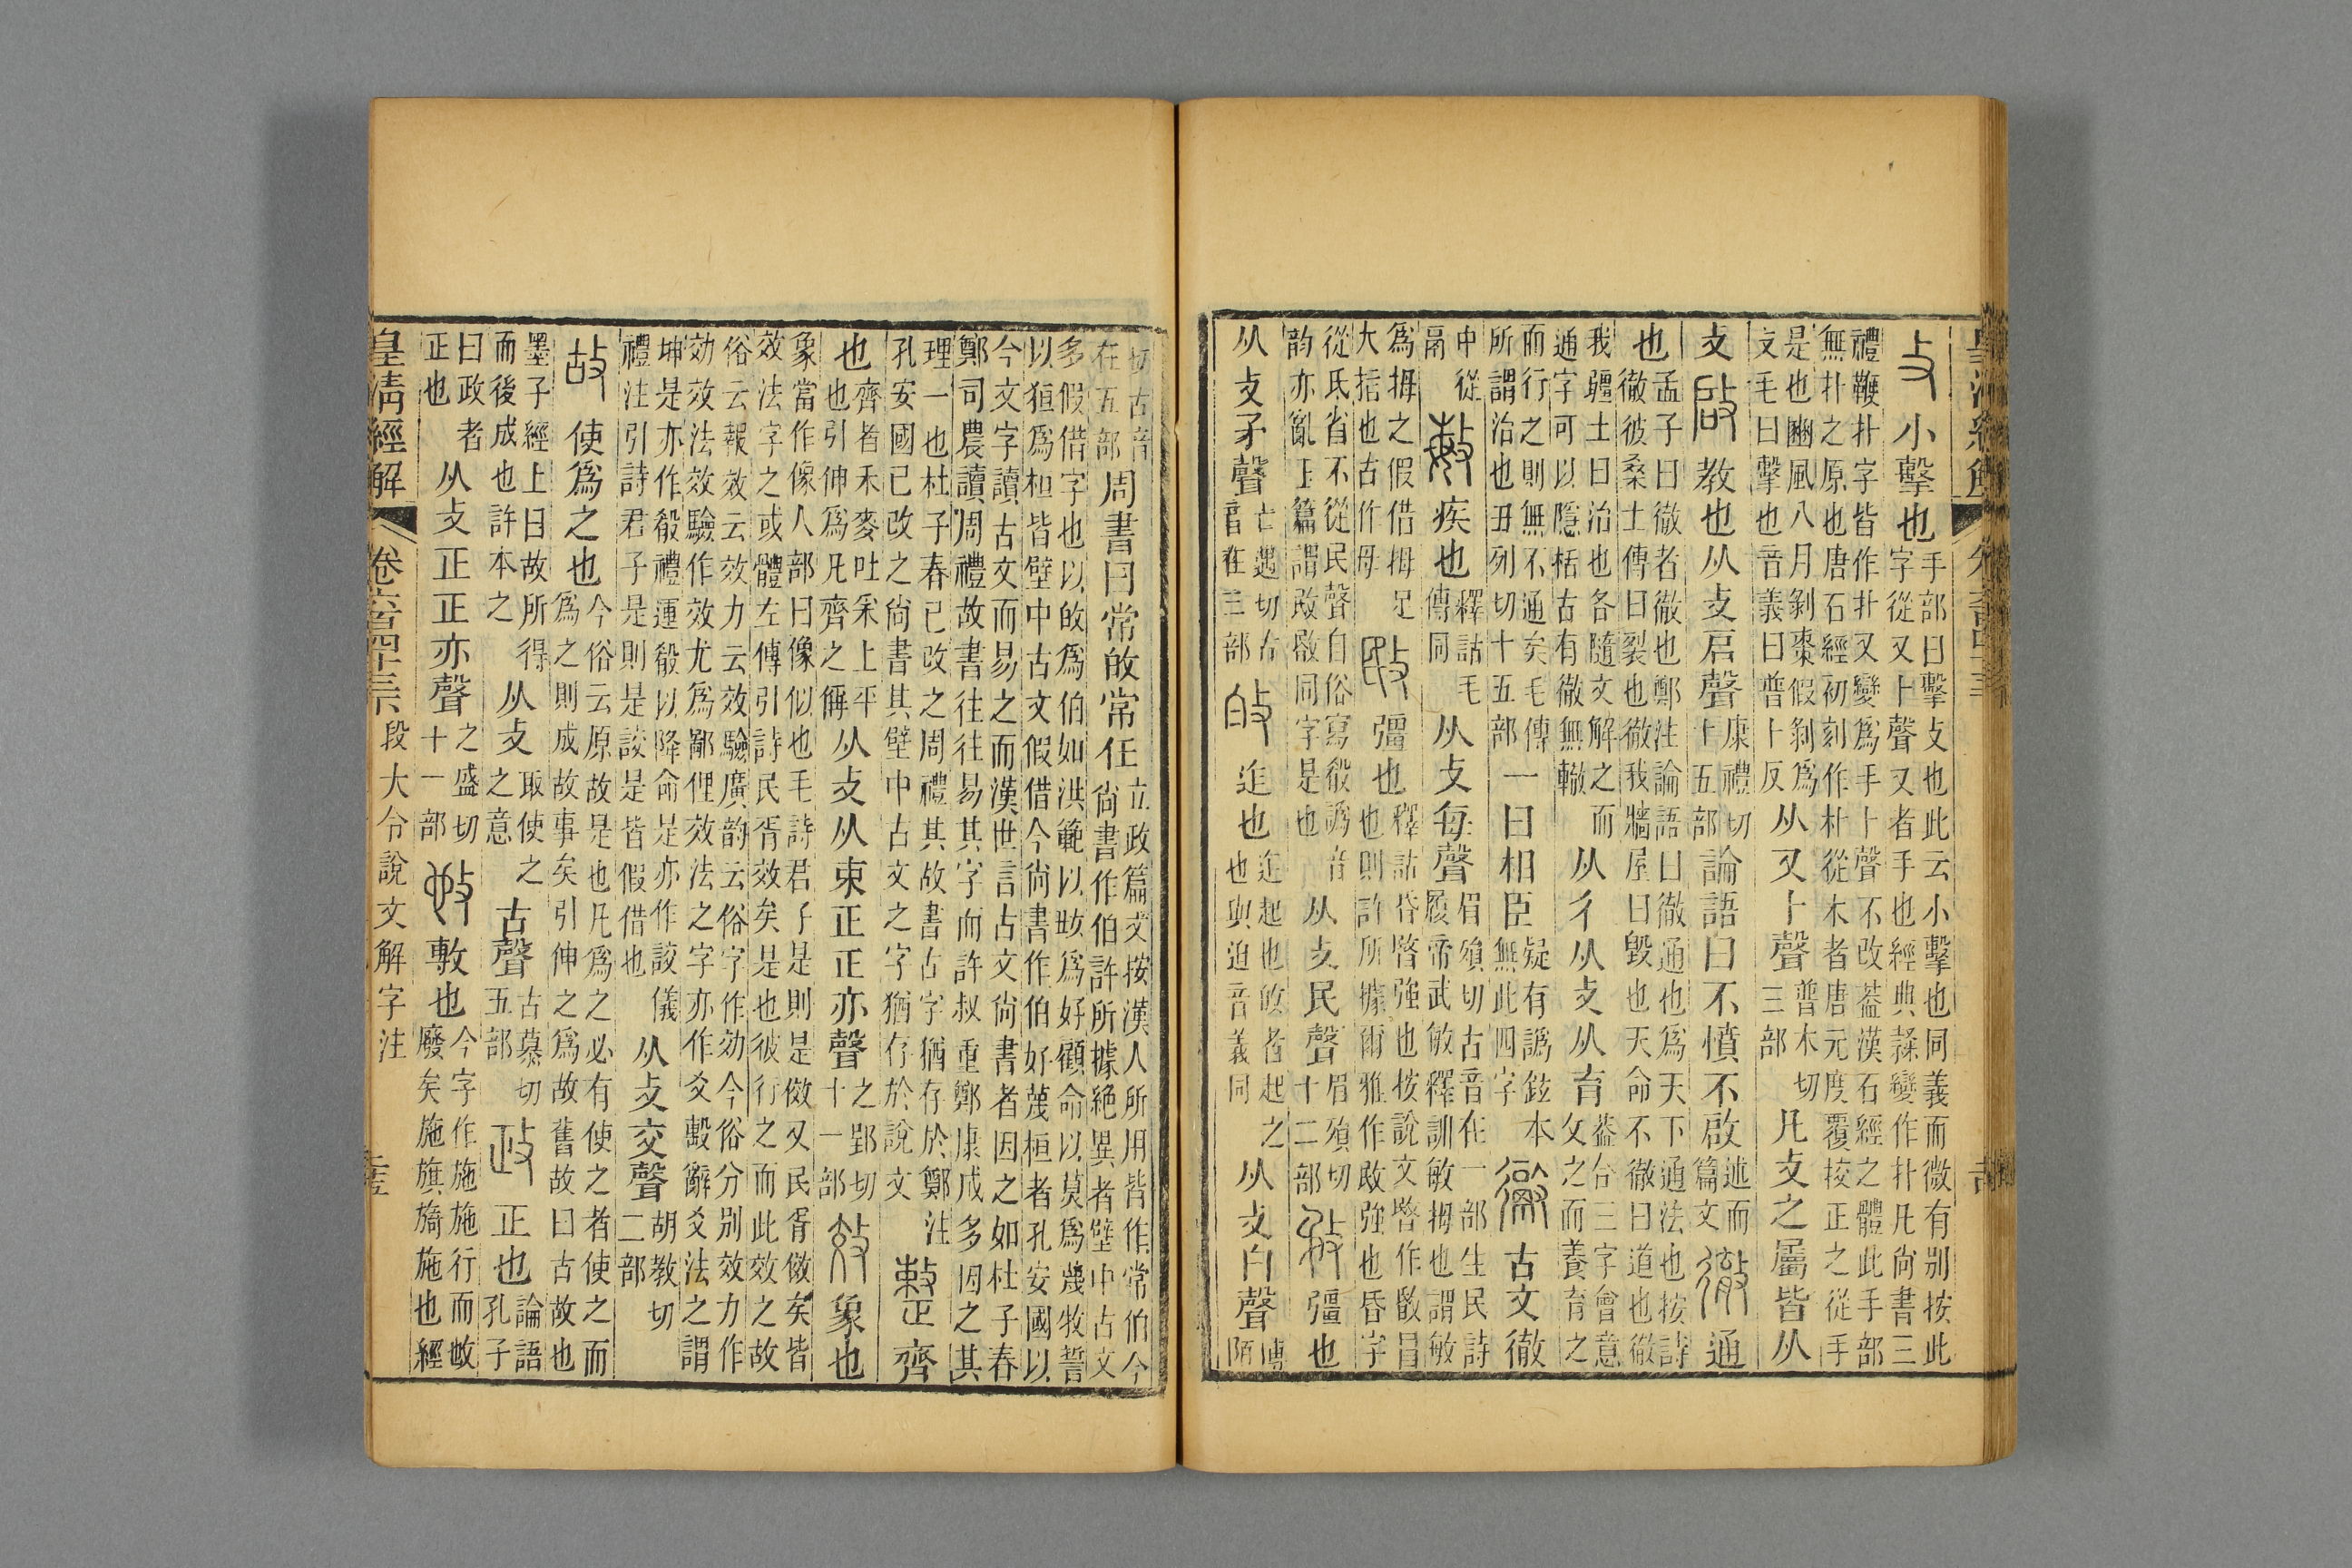 攴小擊也手部曰擊攴也此云小擊也同義而微有別按此字從又卜聲又者手也經典隸變作扑凡尚書三
禮鞭扑字皆作扑又變爲手卜聲不改葢漢石經之體此手部無扑之原也唐石經初刻作朴從木者唐元度覆挍正之從手
是也豳風八月剝棗假剝爲攴毛曰擊也音義曰普卜反从又卜聲普木切三部凡攴之屬皆从
攴啟教也从攴启聲康禮切十五部論語曰不憤不啟述而篇文徹通
也孟子曰徹者徹也鄭注論語曰徹通也爲天下通法也按詩徹彼桑土傳曰裂也徹我牆屋曰毀也天命不徹曰道也徹
我疆土曰治也各隨文解之而通字可以隱栝古有徹無轍从彳从攴从育葢合三字會意攵之而養育之
而行之則無不通矣毛傳所謂治也丑列切十五部一曰相臣疑有譌鉉本無此四字古文徹
中從鬲敏疾也釋詁毛傳同从攴每聲眉殞切古音在一部生民詩履帝武敏釋訓敏拇也謂敏
爲拇之假借拇足大指也古作母敃彊也釋詁昏暋強也按說文暋作敯昌也則許所據爾雅作敃強也昏字
從氐省不從民聲自俗寫殽譌音韵亦亂玉篇謂敃敯同字是也从攴民聲眉殞切十二部敄彊也
从攴矛聲亡遇切古音在三部敀迮也迮起也敀者起之也與迫音義同从攴白聲博陌
切古音在五部周書曰常敀常任立政篇文按漢人所用皆作常伯今尚書作伯許所據絶異者壁中古文
多假借字也以敀爲伯如洪範以㪇爲好顧命以莫爲蔑牧誓以狟爲桓皆壁中古文假借今尚書作伯好蔑桓者孔安國以
今文字讀古文而易之而漢世言古文尚書者因之如杜子春鄭司農讀周禮故書往往易其字而許叔重鄭康成多因之其
理一也杜子春已改之周禮其故書古字猶存於鄭注孔安國已改之尚書其壁中古文之字猶存於說文整齊
也齊者禾麥吐采上平也引伸爲凡齊之偁从攴从束正正亦聲之郢切十一部效象也
象當作像人部曰像似也毛詩君子是則是傚又民胥傚矣皆效法字之或體左傳引詩民胥效矣是也彼行之而此效之故
俗云報效云效力云效驗廣韵云俗字作効今俗分別效力作効效法效驗作效尤爲鄙俚效法之字亦作爻毄辭爻法之謂
坤是亦作殽禮運殽以降命是亦作詨儀禮注引詩君子是則是詨是皆假借也从攴交聲胡教切二部
故使爲之也今俗云原故是也凡爲之必有使之者使之而爲之則成故事矣引伸之爲故舊故曰古故也
墨子經上曰故所得而後成也許本之从攴取使之之意古聲古慕切五部政正也論語孔子
曰政者正也从攴正正亦聲之盛切十一部敷也今字作施施行而岐廢矣施旗旖施也經
皇清經解 卷六百四十三 段大令說文解字注